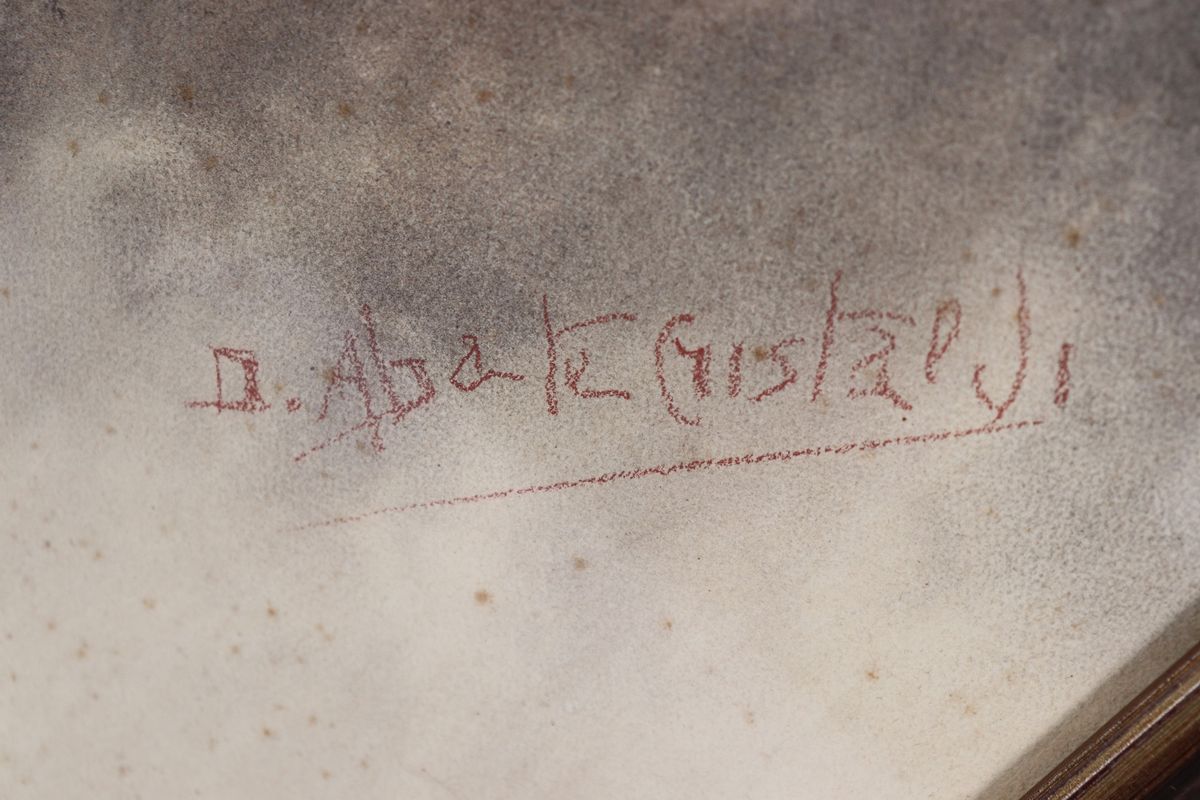 D. Abate Cristaldi